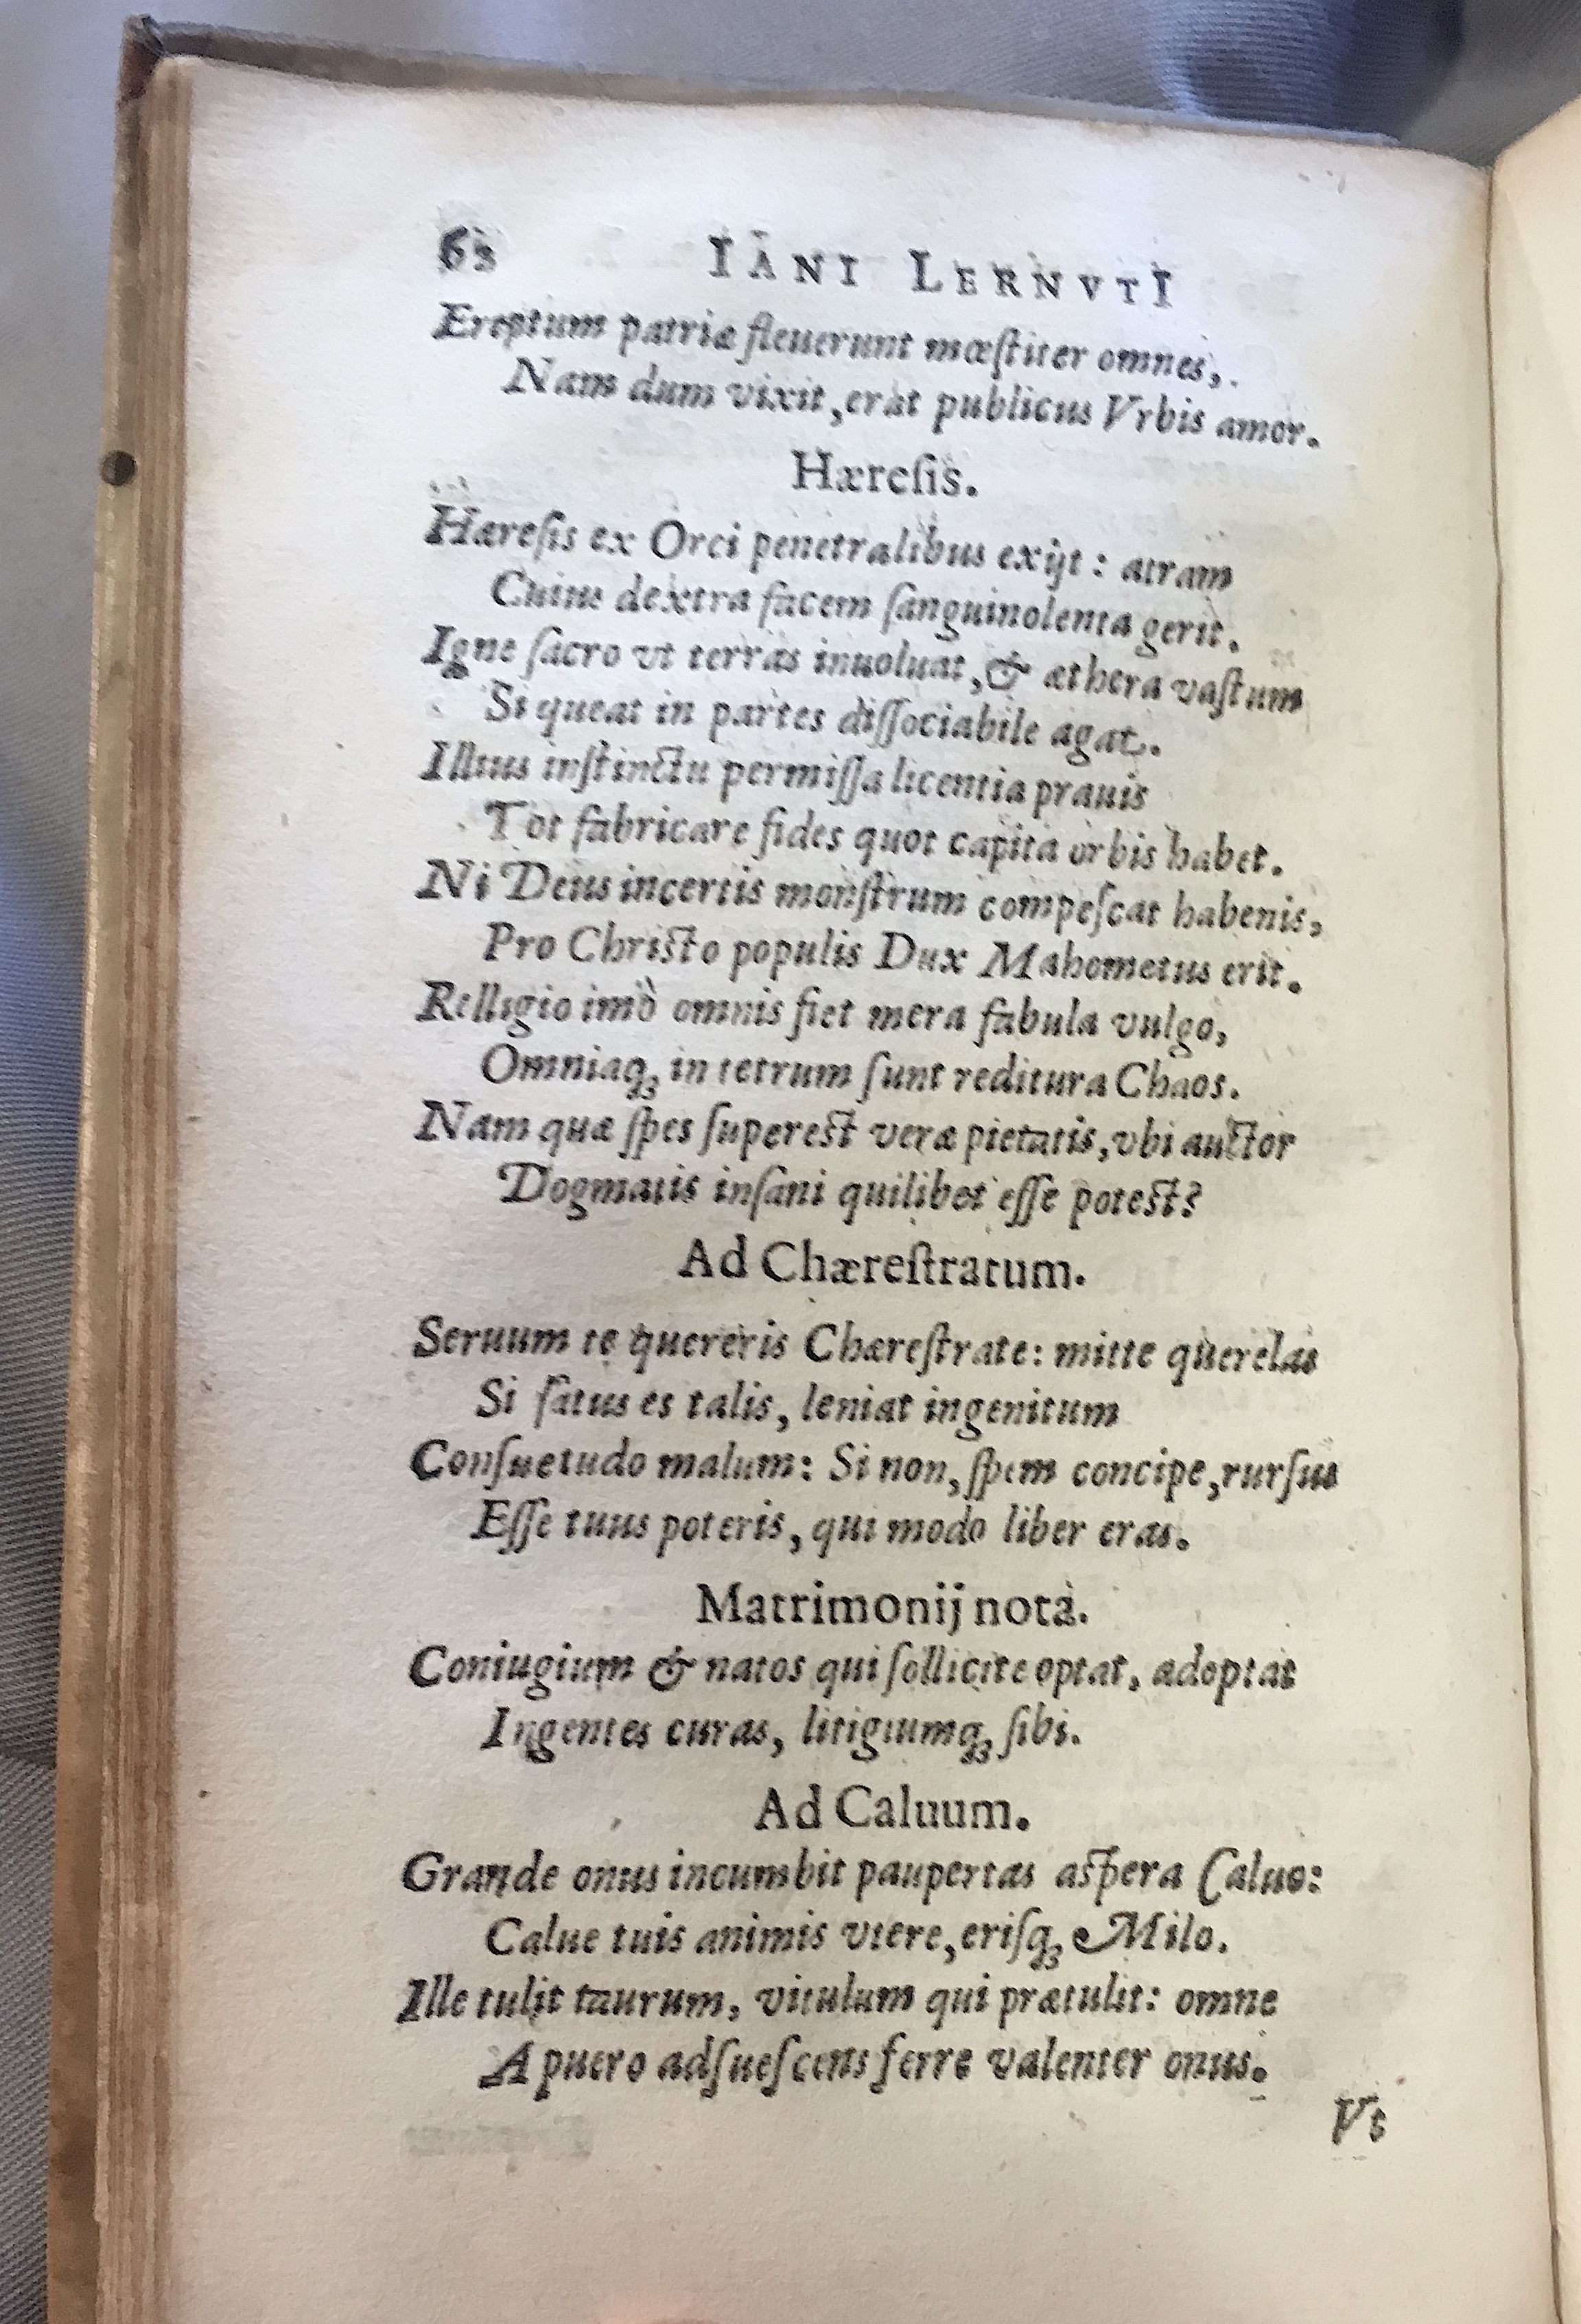 63 IANI LERNVTI
Ereptum patriæ fleuerunt mœſtiter omnes,
Nam dum vixit, erat publicus Vrbis amor.
Hæreſis.
Hæreſis ex Orci penetralibus exijt: atram
Cuius dextra facem ſanguinolenta gerit.
Igne ſacro vt terras inuoluat, & æthera vaſtum
Si queat in partes diſſociabile agat.
Illius inſtinctu permiſſa licentia prauis
Tot fabricare fides quot capita orbis habet.
Ni Deus incertis monſtrum compeſcat habenis,
Pro Christo populis Dux Mahometus erit.
Relligio imò omnis fiet mera fabula vulgo,
Omniaq; in tetrum ſunt reditura Chaos.
Nam quæ ſpes ſuperest veræ pietatis, vbi auctor
Dogmatis inſani quilibet eſſe potest?
Ad Chæreſtratum.
Seruum te quereris Chæreſtrate: mitte querelas
Si ſatus es talis, leniat ingenitum
Conſuetudo malum: Si non, ſpem concipe, rurſus
Eſſe tuus poteris, qui modo liber eras.
Matrimonij nota.
Coniugium & natos qui ſollicite optat, adoptat
Ingentes curas, litigiumq; ſibi.
Ad Caluum.
Grande onus incumbit paupertas aspera Caluo:
Calue tuis animis vtere, eriſq; Milo.
Ille tulit taurum, vitulum qui prætulit: omne
A puero adſueſcens ferre valenter onus.
Vt